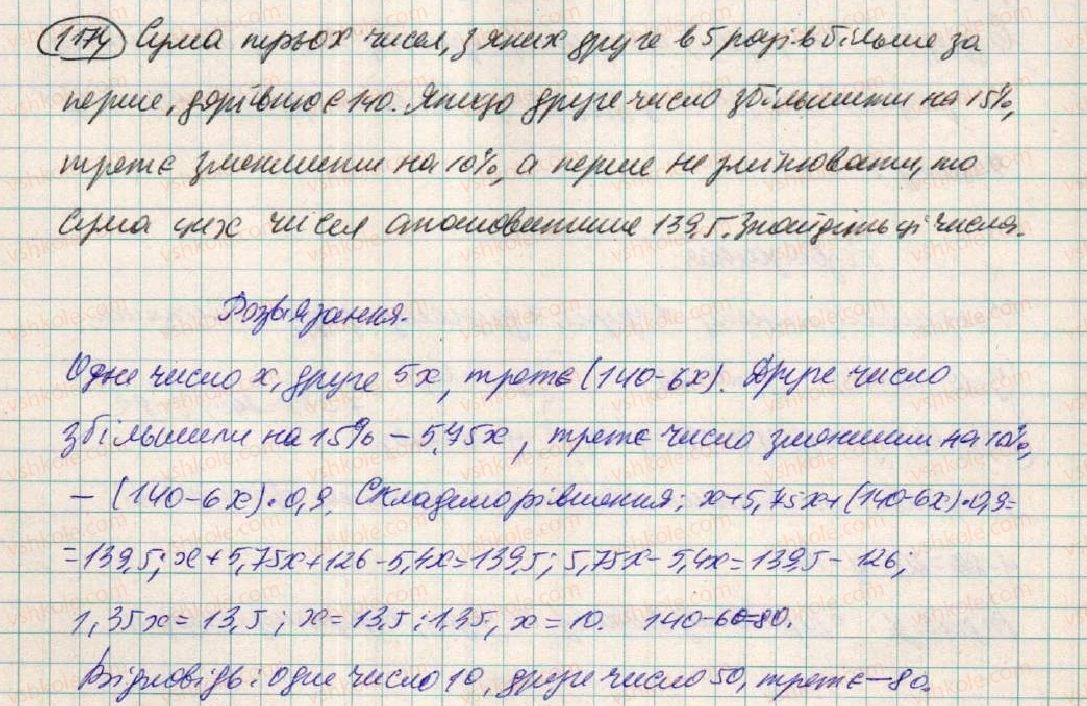 1174 Сума трьох чисел, з яких друге в 5 разів більше за
перше, дорівнює 140. Якщо друге число збільшити на 15%,
третє зменшити на 10%, а перше не змінювати, то
сума цих чисел становитиме 139,5. Знайдіть ці числа.
Розв'язання.
Одне число x, друге 5x, третє (140-6x). Друге число
збільшили на 15% – 5,75x, третє число зменшили на 10%,
– (140-6x)·0,9. Складемо рівняння; x+5,75x+(140-6x)·0,9=
=139,5; x+5,75x+126-5,4x=139,5; 5,75x-5,4x=139,5-126;
1,35x=13,5; x=13,5:1,35, x=10. 140-60=80.
Відповідь: одне число 10, друге число 50, третє – 80.